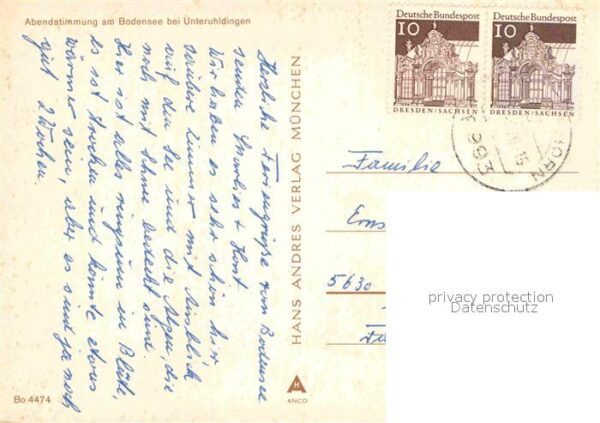 Abendstimmung am Bodensee bei Unteruhldingen
Herzliche Feriengrüße vom Bodensee
senden Marlies + Horst.
Wir haben es sehr schön hier
saubere Zimmer mit Ausblick
auf den See und die Alpen, die
noch mit Schnee bedeckt sind.
Hier ist alles ringsum in Blüte,
es ist trocken und könnte etwas
wärmer sein, aber es sind ja noch
gut 2 Wochen.
Bo 4474
HANS ANDRES VERLAG MÜNCHEN
H
A
ANCO
Deutsche Bundespost
10
DRESDEN/SACHSEN
Deutsche Bundespost
10
DRESDEN/SACHSEN
993
Familie
Erns
5630
privacy protection
Datenschutz